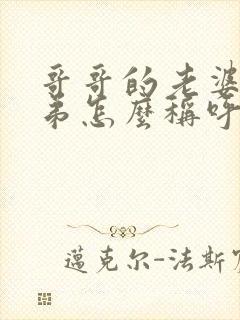 哥哥的老婆
弟怎麼稱呼
邁克尔-法斯